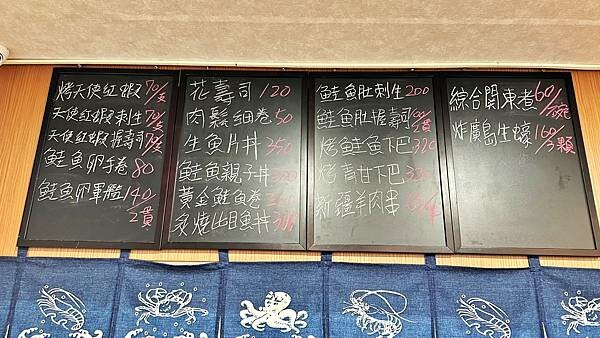 烤天使紅蝦70/支
天使紅蝦刺生70/支
天使紅蝦握壽司70/支
鮭魚卵手卷 80
鮭魚卵軍艦140/2貫
花壽司 120
肉鬆細卷 50
生魚片丼 250
鮭魚親子丼
黃金鮭魚卷
炙燒比目魚丼
鮭魚肚刺生 200
鮭魚肚握壽司100/2貫
烤鮭魚下巴 320
烤青甘下巴
新疆羊肉串
綜合關東煮60/碗
炸廣島生蠔160/3顆